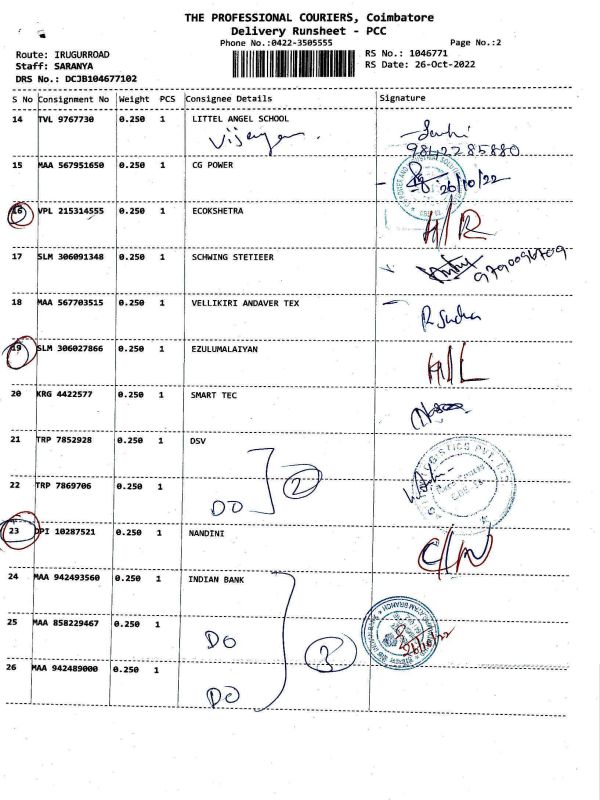 THE PROFESSIONAL COURIERS, Coimbatore
Delivery Runsheet - PCC
Phone No.:0422-3505555 Page No.:2
Route: IRUGURROAD RS No.: 1046771
Staff: SARANYA RS Date: 26-Oct-2022
DRS No.: DCJB104677102
S No Consignment No Weight PCS Consignee Details Signature
14 TVL 9767730 0.250 1 LITTEL ANGEL SCHOOL
9842285880
15 MAA 567951650 0.250 1 CG POWER
26/10/22
16 VPL 215314555 0.250 1 ECOKSHETRA
H/R
17 SLM 306091348 0.250 1 SCHWING STETIEER
18 MAA 567703515 0.250 1 VELLIKIRI ANDAVER TEX
R Sudha
19 SLM 306027866 0.250 1 EZULUMALAIYAN
H/L
20 KRG 4422577 0.250 1 SMART TEC
21 TRP 7852928 0.250 1 DSV
2
22 TRP 7869706 0.250 1
DO
23 OPI 10287521 0.250 1 NANDINI
C/N
24 MAA 942493560 0.250 1 INDIAN BANK
25 MAA 858229467 0.250 1
DO 3 26/10/22
26 MAA 942489000 0.250 1
DO